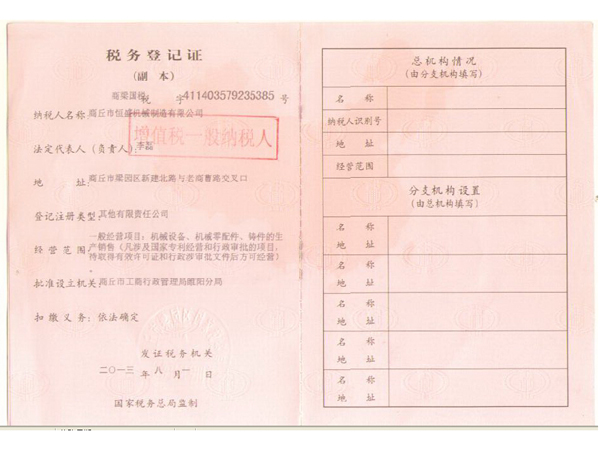 税务登记证
(副 本)
商梁国税 税 字 411403579235385 号
纳税人名称 商丘市恒盛机械制造有限公司
增值税一般纳税人
法定代表人 (负责人) 李磊
地 址: 商丘市梁园区新建北路与老商曹路交叉口
登记注册类型: 其他有限责任公司
一般经营项目: 机械设备、机械零配件、铸件的生
经 营 范 围: 产销售 (凡涉及国家专利经营和行政审批的项目,
待取得有效许可证和行政许审批文件后方可经营)
批准设立机关: 商丘市工商行政管理局睢阳分局
扣 缴 义 务: 依法确定
发证税务机关
二〇一三 年 八 月 一 日
国家税务总局监制
总机构情况
(由分支机构填写)
名 称
纳税人识别号
地 址
经营范围
分支机构设置
(由总机构填写)
名 称
地 址
名 称
地 址
名 称
地 址
名 称
地 址
名 称
地 址